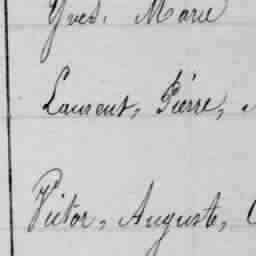 Yves, Marie
Laurent, Pierre,
Victor, Auguste,